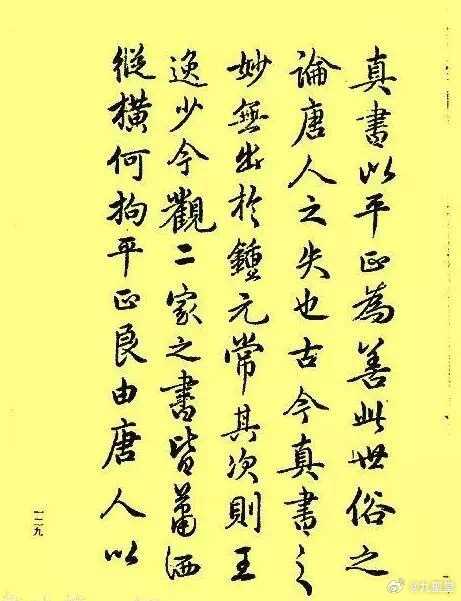 真書以平正為善此世俗之
論唐人之失也古今真書之
妙無出於鍾元常其次則王
逸少今觀二家之書皆蕭洒
縱横何拘平正良由唐人以
一二九
@九型堂